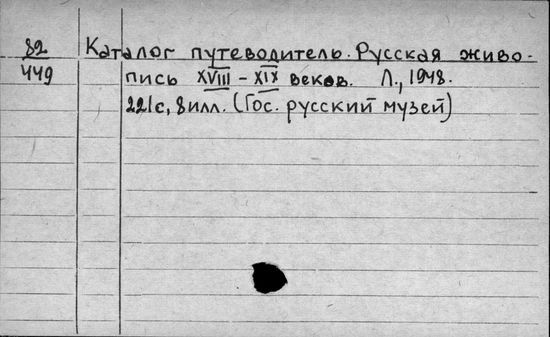 82 Каталог путеводитель. Русская живо-
449 пись XVIII – XIX веков. Л., 1948.
221с, 8 илл. (Гос. русский музей)